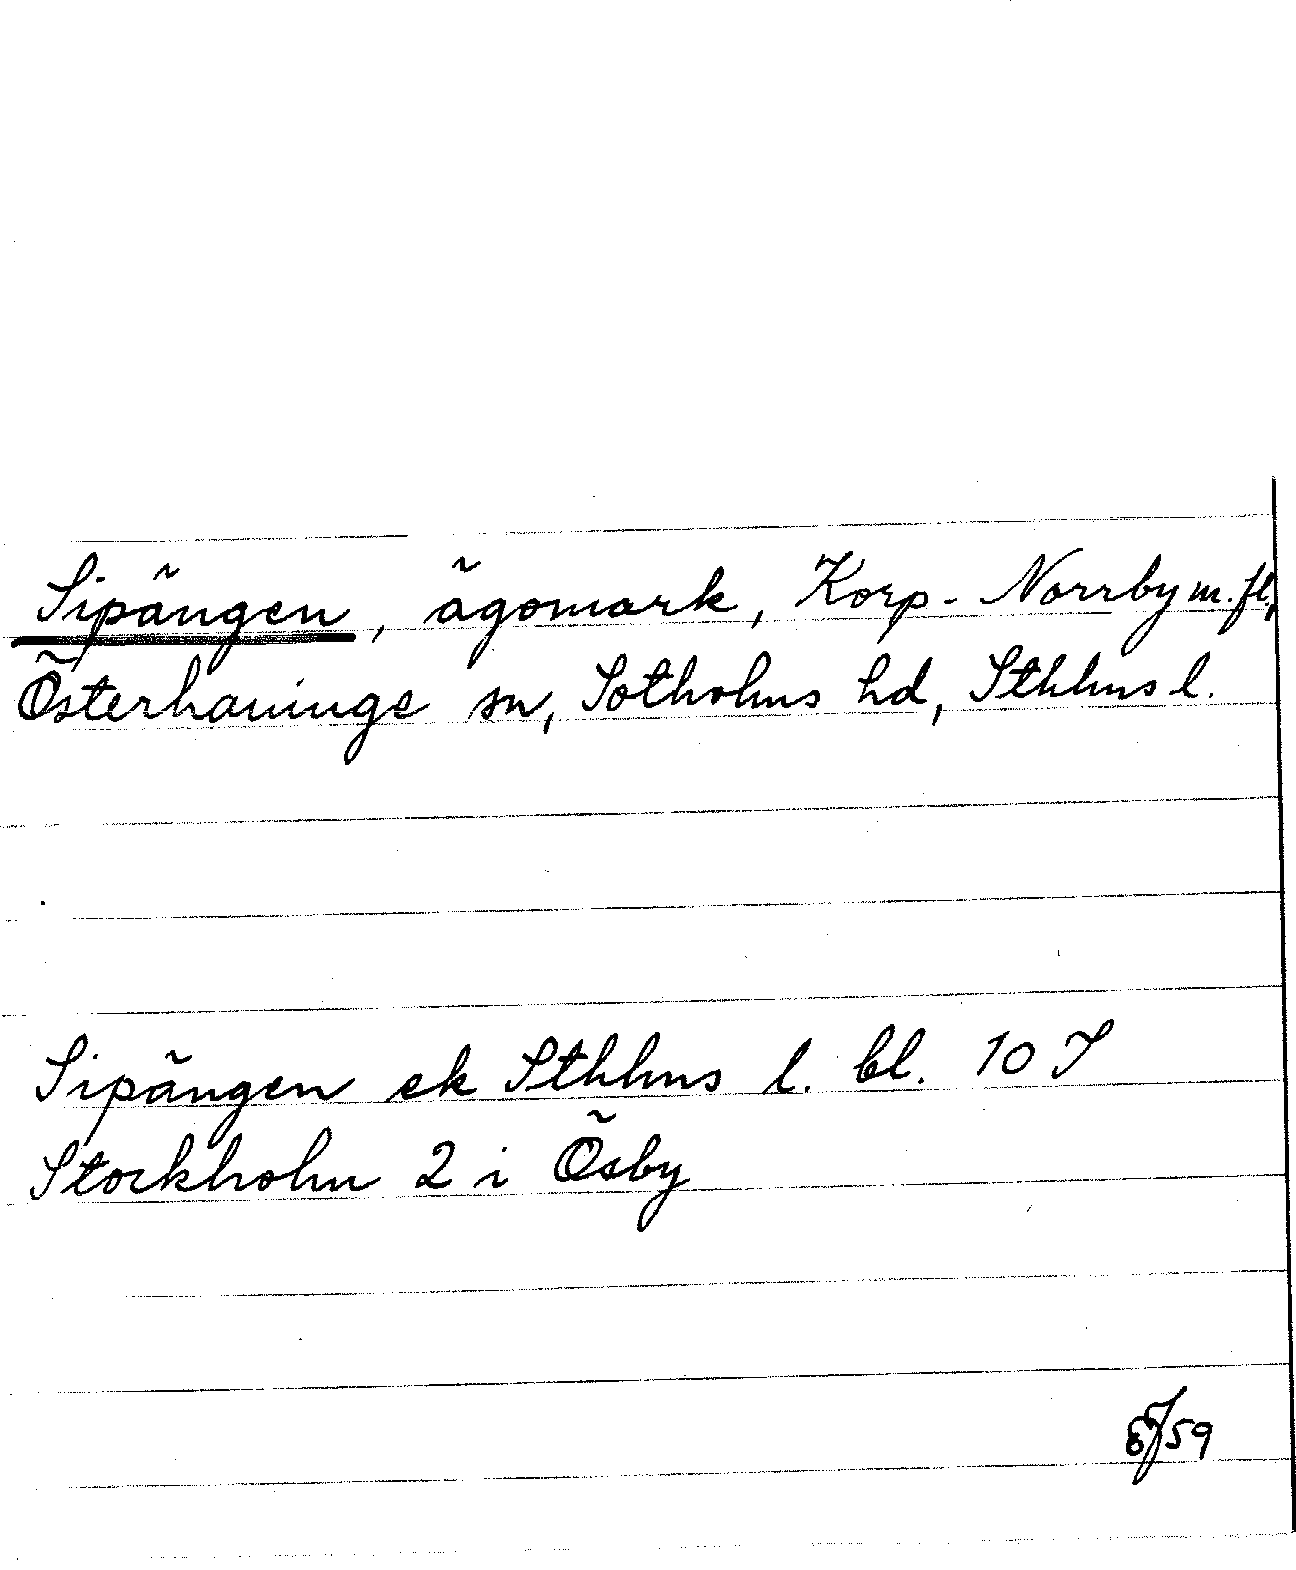 Sipängen, ägomark, Korp-Norrby m.fl,
Österhaninge sn, Sotholms hd, Sthlms l.
Sipängen ek Sthlms l. bl. 10 I
Stockholm 2 i Ösby
59